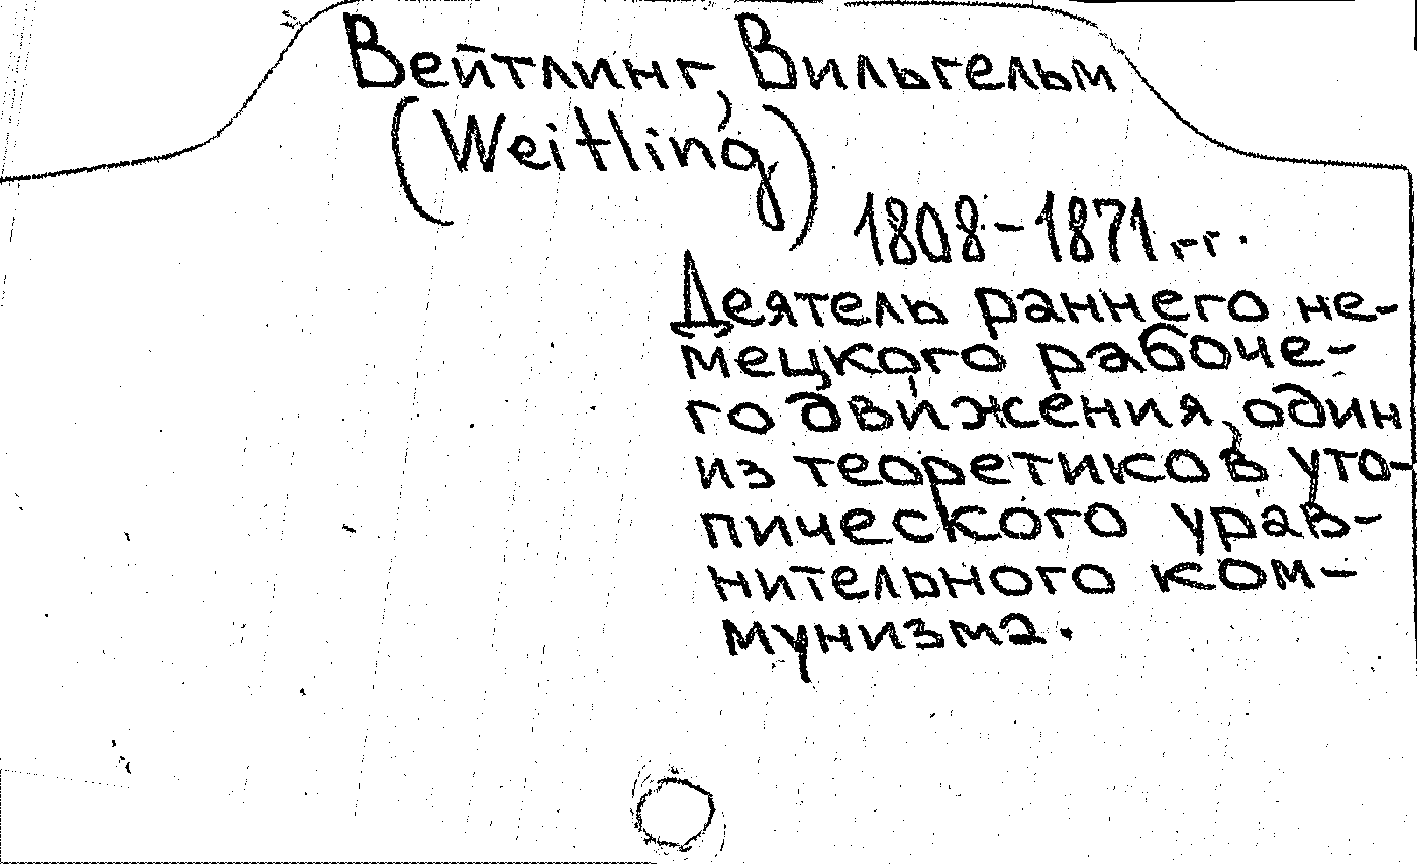 Вейтлинг, Вильгельм
(Weitling)
1808-1871 гг.
Деятель раннего не-
мецкого рабоче-
го движения, один
из теоретиков уто-
пического урав-
нительного ком-
мунизма.